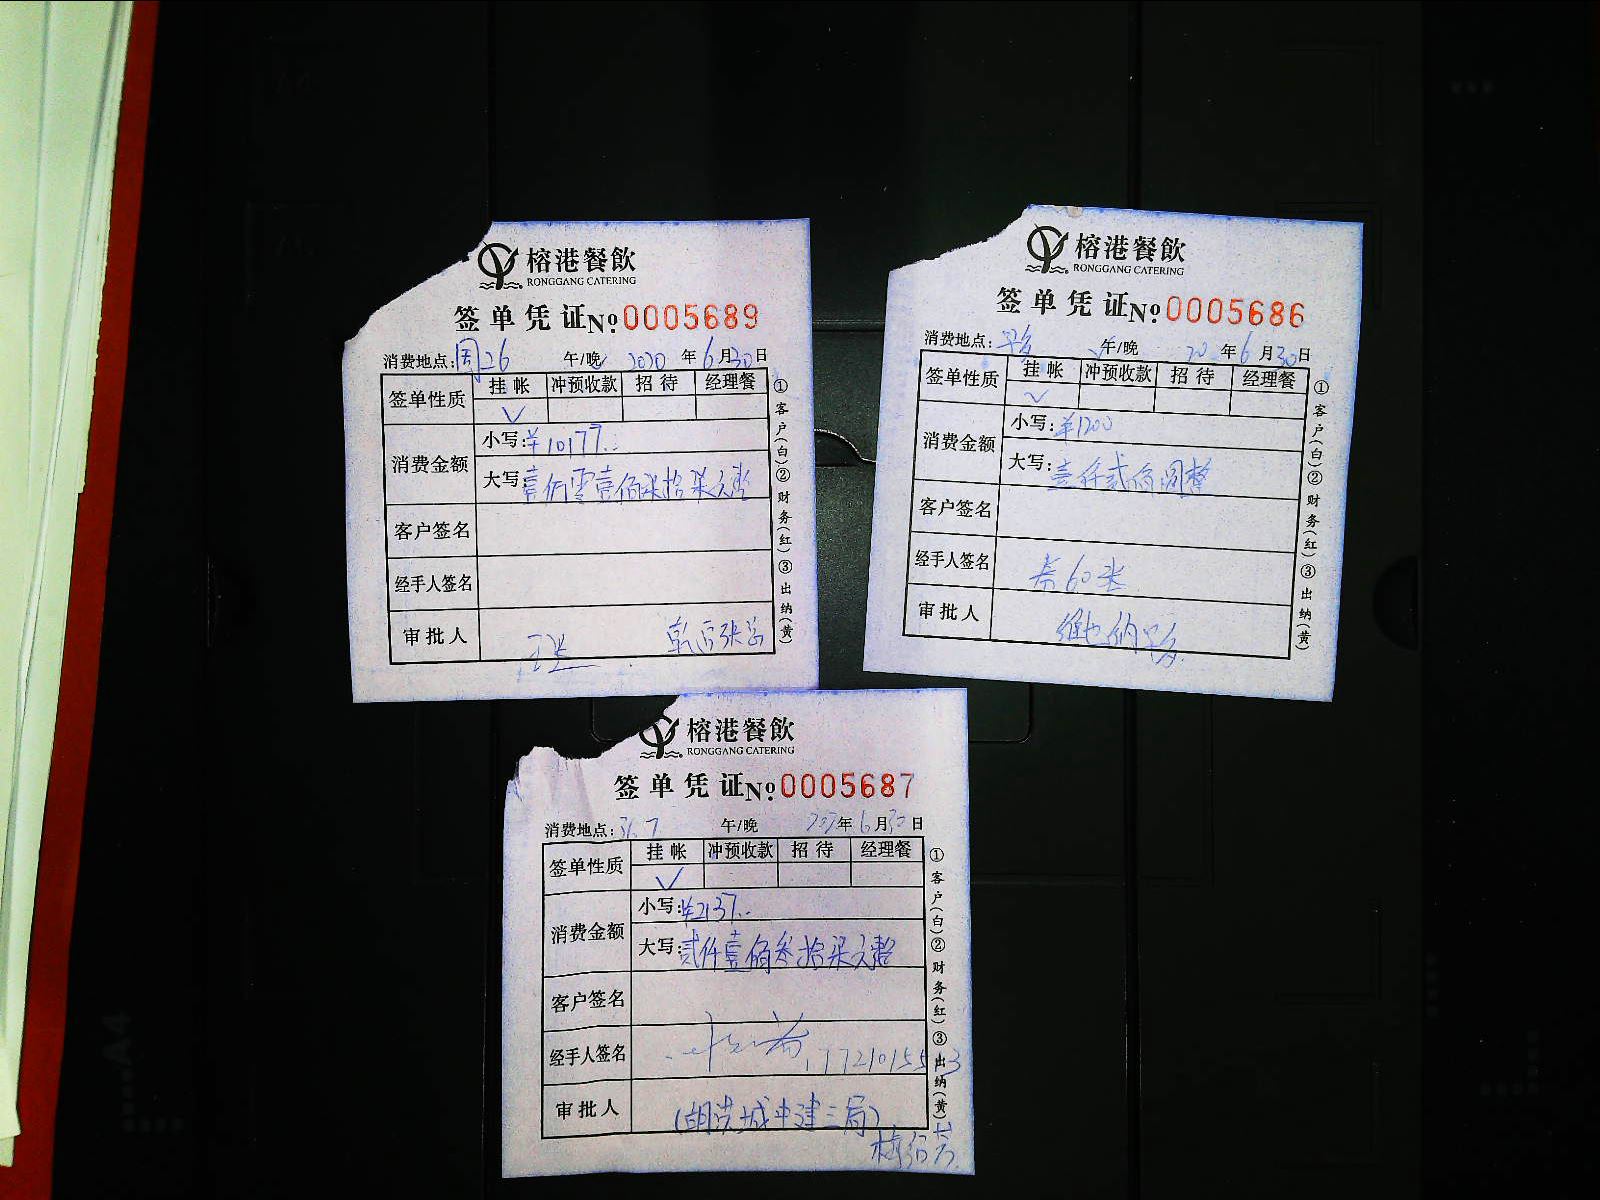 榕港餐飲
RONGGANG CATERING
签单凭证 No 0005689
消费地点: 周26 午/晚 2020年6月30日
签单性质 挂帐 冲预收款 招待 经理餐
✓
消费金额 小写: ¥10177..
大写: 壹仟零壹佰柒拾柒元整
客户签名
经手人签名
审批人
①客户(白)②财务(红)③出纳(黄)
榕港餐飲
RONGGANG CATERING
签单凭证 No 0005686
消费地点: 午/晚 20年6月30日
签单性质 挂帐 冲预收款 招待 经理餐
✓
消费金额 小写: ¥1200
大写: 壹仟贰佰圆整
客户签名
经手人签名 60张
审批人 维也纳
①客户(白)②财务(红)③出纳(黄)
榕港餐飲
RONGGANG CATERING
签单凭证 No 0005687
消费地点: 午/晚 年6月30日
签单性质 挂帐 冲预收款 招待 经理餐
✓
消费金额 小写: ¥2137..
大写: 贰仟壹佰叁拾柒元整
客户签名
经手人签名
审批人 城中建三局)
①客户(白)②财务(红)③出纳(黄)
A4